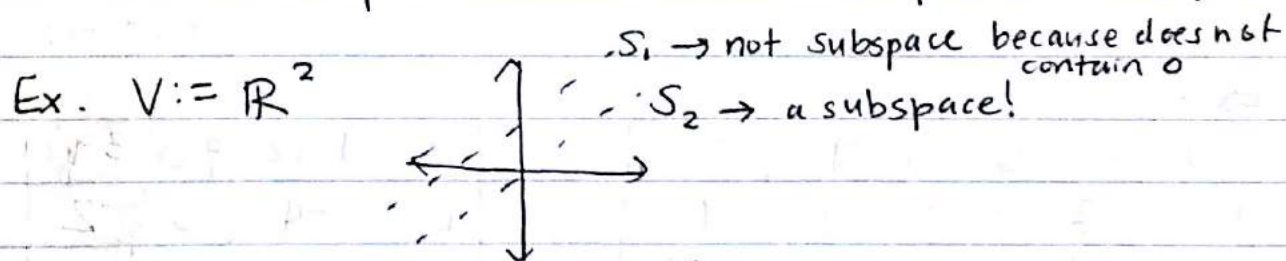 S₁ → not subspace because does not
contain 0
Ex. V := ℝ²
S₂ → a subspace!